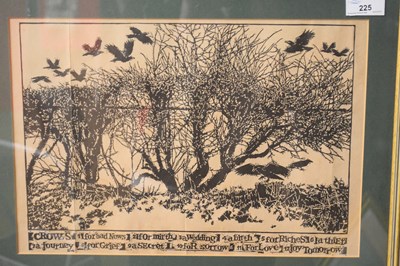 225
CROWS 1 for bad News 2 for mirth 3 a Wedding 4 a Birth 5 for Riches 6 a thief
7 a Journey 8 for Grief 9 a Secret 10 for Sorrow 11 For Love 12 Joy Tomorrow